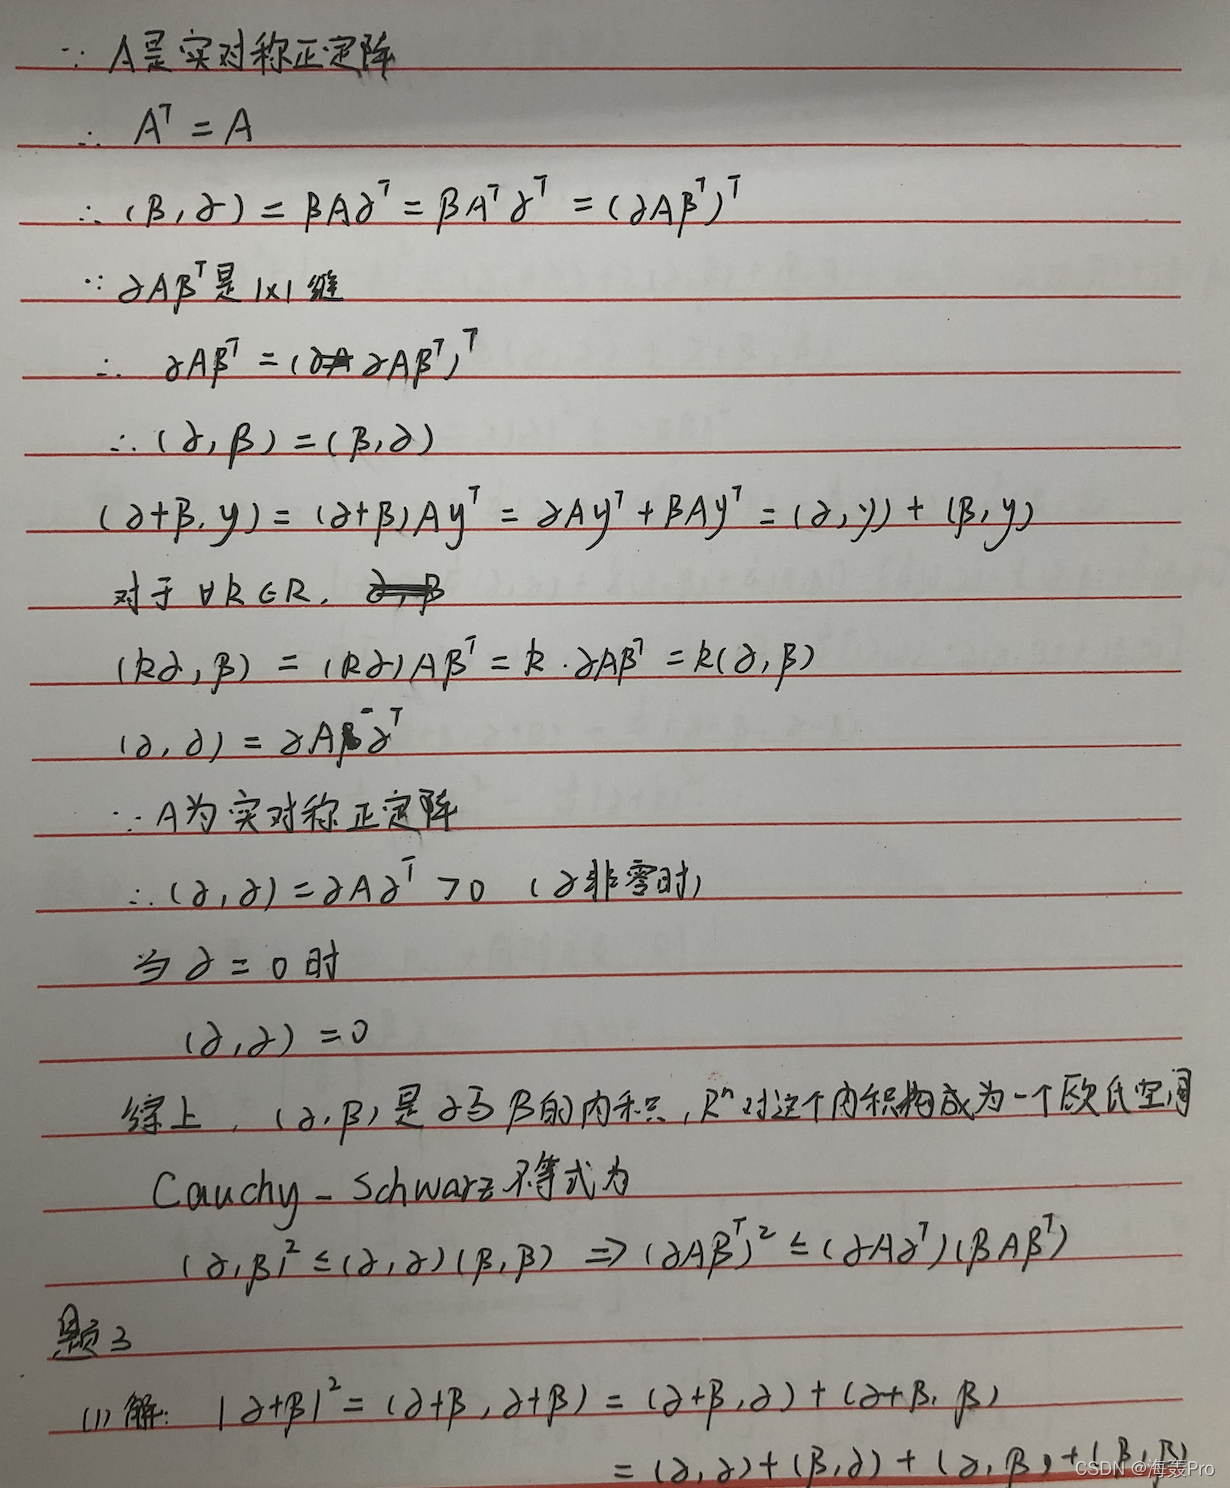 ∵ A是实对称正定阵
∴ Aᵀ = A
∴ (β, α) = βAαᵀ = βAᵀαᵀ = (αAβᵀ)ᵀ
∵ αAβᵀ是1×1
∴ αAβᵀ = (αAβᵀ)ᵀ
∴ (α, β) = (β, α)
(α+β, y) = (α+β)Ayᵀ = αAyᵀ + βAyᵀ = (α, y) + (β, y)
对于 ∀k∈R,
(kα, β) = (kα)Aβᵀ = k·αAβᵀ = k(α, β)
(α, α) = αAαᵀ
∵ A为实对称正定阵
∴ (α, α) = αAαᵀ >0 (α非零时)
当 α = 0 时
(α, α) = 0
综上, (α, β)是α与β的内积, Rⁿ对这个内积构成为一个欧氏空间
Cauchy-Schwarz不等式为
(α, β)² ≤ (α, α)(β, β) ⇒ (αAβᵀ)² ≤ (αAαᵀ)(βAβᵀ)
题3
(1) 解: |α+β|² = (α+β, α+β) = (α+β, α) + (α+β, β)
= (α, α) + (β, α) + (α, β) + (β, β)
CSDN @海轰Pro